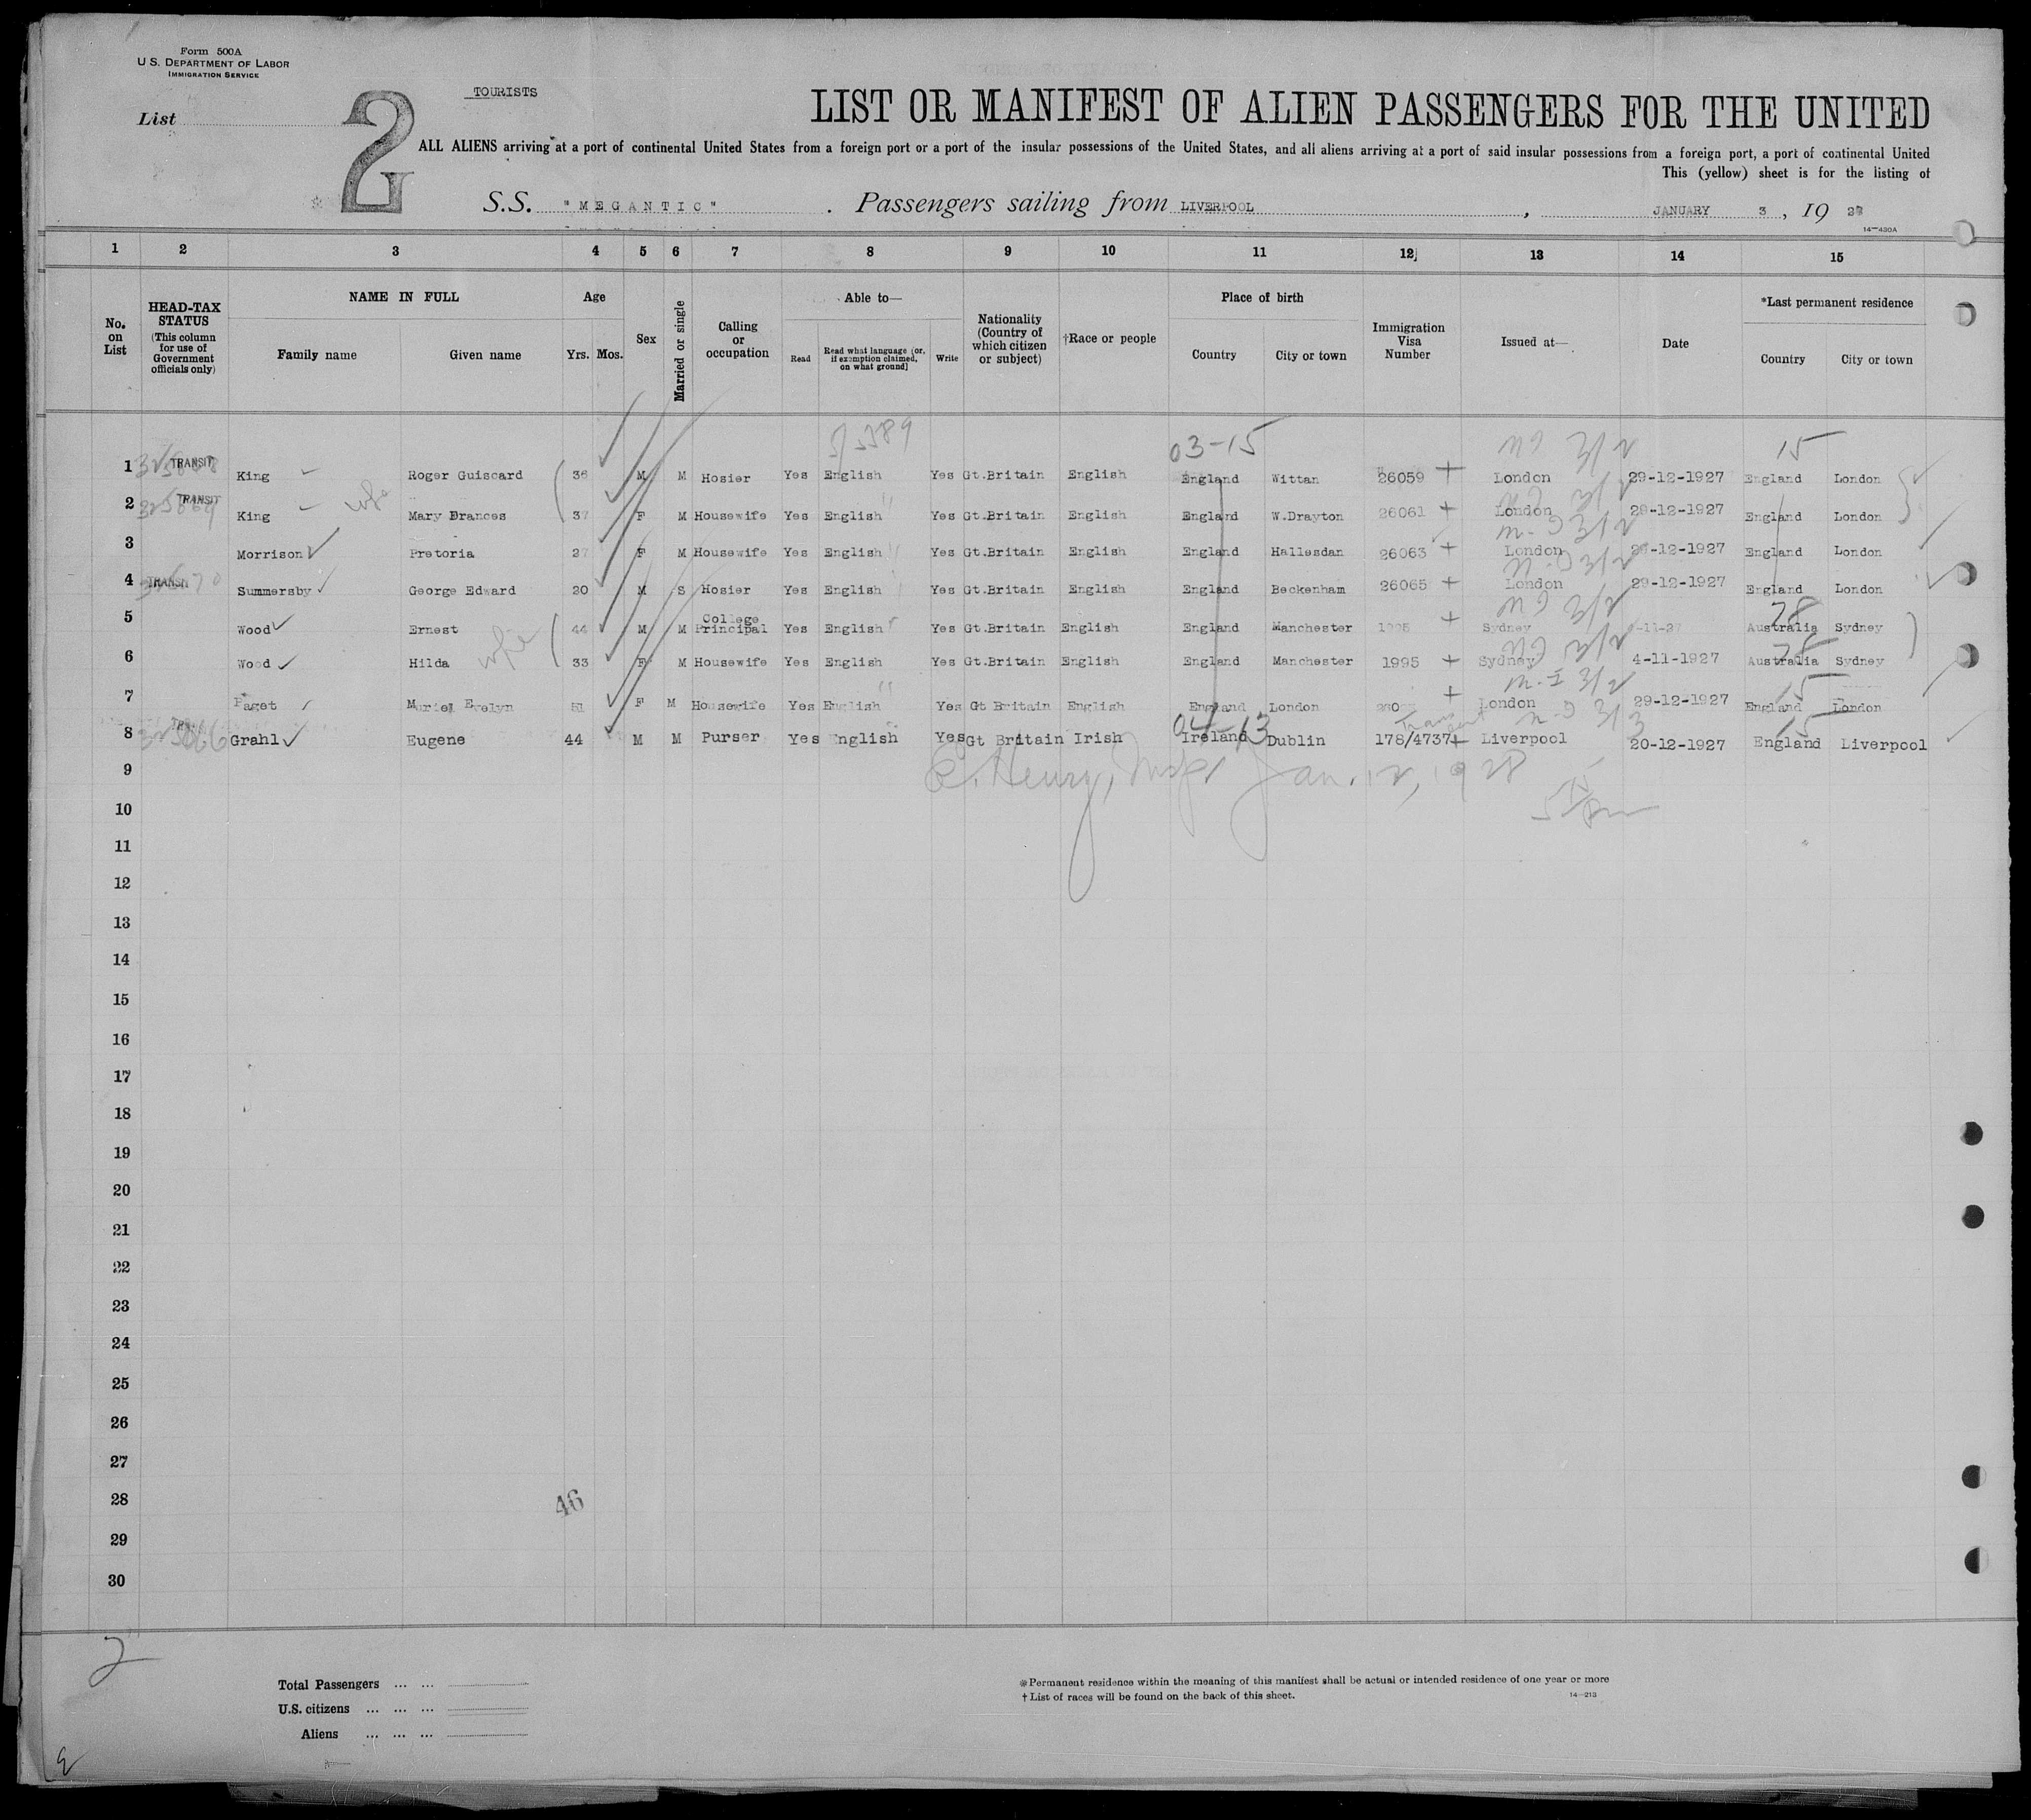 Form 500A
U.S. DEPARTMENT OF LABOR
IMMIGRATION SERVICE
List
2
TOURISTS
LIST OR MANIFEST OF ALIEN PASSENGERS FOR THE UNITED
ALL ALIENS arriving at a port of continental United States from a foreign port or a port of the insular possessions of the United States, and all aliens arriving at a port of said insular possessions from a foreign port, a port of continental United
This (yellow) sheet is for the listing of
S.S. "MEGANTIC". Passengers sailing from LIVERPOOL, JANUARY 3, 19
14-430A
1 2 3 4 5 6 7 8 9 10 11 12 13 14 15
No. on List
HEAD-TAX STATUS
(This column for use of Government officials only)
NAME IN FULL
Family name Given name
Age
Yrs. Mos.
Sex
Married or single
Calling or occupation
Able to—
Read
Read what language [or, if exemption claimed, on what ground]
Write
Nationality (Country of which citizen or subject)
†Race or people
Place of birth
Country City or town
Immigration Visa Number
Issued at—
Date
*Last permanent residence
Country City or town
03-15 15
1 TRANSIT King Roger Guiscard 36 M M Hosier Yes English Yes Gt.Britain English England Wittan 26059 London 29-12-1927 England London
2 TRANSIT King wife Mary Frances 37 F M Housewife Yes English Yes Gt.Britain English England W.Drayton 26061 London 29-12-1927 England London
3 Morrison Pretoria 27 F M Housewife Yes English Yes Gt.Britain English England Hallesdan 26063 London 29-12-1927 England London
4 TRANSIT Summersby George Edward 20 M S Hosier Yes English Yes Gt.Britain English England Beckenham 26065 London 29-12-1927 England London
5 Wood Ernest 44 M M College Principal Yes English Yes Gt.Britain English England Manchester 1995 Sydney Australia Sydney
6 Wood wife Hilda 33 F M Housewife Yes English Yes Gt.Britain English England Manchester 1995 Sydney 4-11-1927 Australia Sydney
7 Paget Muriel Evelyn 51 F M Housewife Yes English Yes Gt Britain English England London London 29-12-1927 England London
8 Grahl Eugene 44 M M Purser Yes English Yes Gt Britain Irish Ireland Dublin 178/4737 Liverpool 20-12-1927 England Liverpool
9
Henry, Insp Jan. 12, 1928
10
11
12
13
14
15
16
17
18
19
20
21
22
23
24
25
26
27
28
46
29
30
2
Total Passengers ... ...
U.S. citizens ... ... ...
Aliens ... ... ...
*Permanent residence within the meaning of this manifest shall be actual or intended residence of one year or more
†List of races will be found on the back of this sheet.
14-213